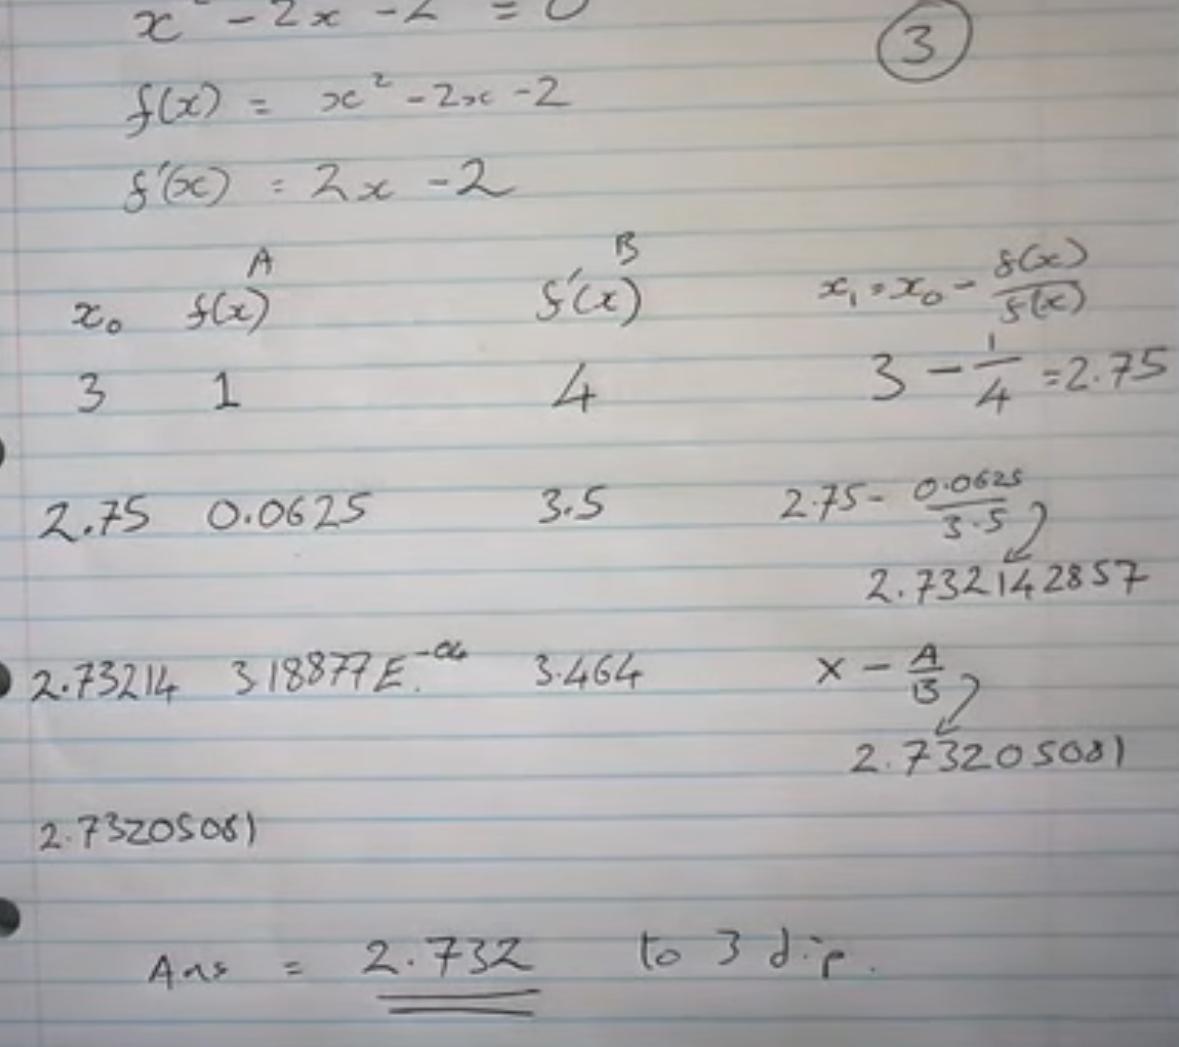 x² - 2x - 2 = 0
③
f(x) = x² - 2x - 2
f'(x) = 2x - 2
A B
x₀ f(x) f'(x) x₁ = x₀ - f(x)/f(x)
3 1 4 3 - 1/4 = 2.75
2.75 0.0625 3.5 2.75 - 0.0625/3.5
2.732142857
2.73214 3.18877E⁻⁰⁴ 3.464 x - A/B
2.73205081
2.73205081
Ans = 2.732 to 3 d.p.